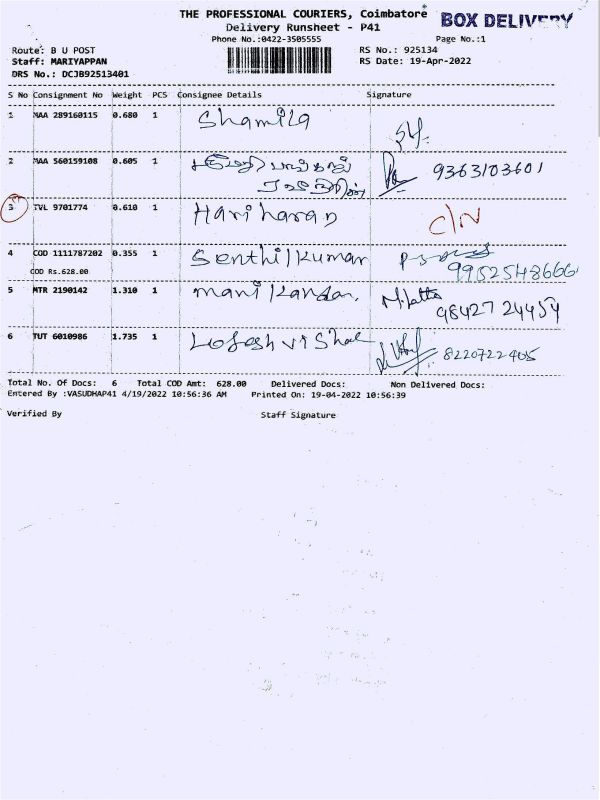 THE PROFESSIONAL COURIERS, Coimbatore
BOX DELIVERY
Delivery Runsheet - P41
Phone No.:0422-3505555
Page No.:1
Route: B U POST
RS No.: 925134
Staff: MARIYAPPAN
RS Date: 19-Apr-2022
DRS No.: DCJB92513401
S No Consignment No Weight PCS Consignee Details Signature
1 MAA 289160115 0.680 1 Shamila
2 MAA 560159108 0.605 1 9363103601
3 TVL 9701774 0.610 1 Hariharan
4 COD 1111787202 0.355 1 Senthil Kumar
COD Rs.628.00 9952548666
5 MTR 2190142 1.310 1 Manikandan
98427 24454
6 TUT 6010986 1.735 1 8220722405
Total No. Of Docs: 6 Total COD Amt: 628.00 Delivered Docs: Non Delivered Docs:
Entered By :VASUDHAP41 4/19/2022 10:56:36 AM Printed On: 19-04-2022 10:56:39
Verified By Staff Signature